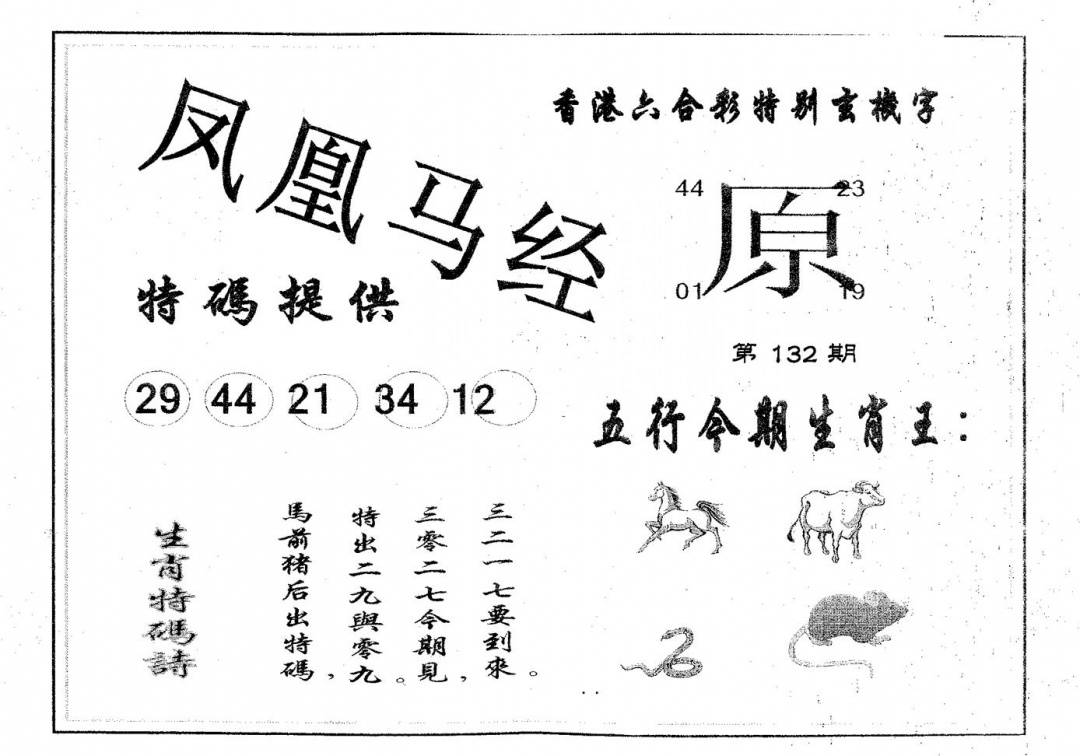 凤凰马经
香港六合彩特别玄機字
44 23
原
01 19
特碼提供
第 132 期
29 44 21 34 12
五行今期生肖王：
生肖特碼詩
馬前猪后出特碼，
特出二九與零九。
三零二七今期見，
三二一七要到來。